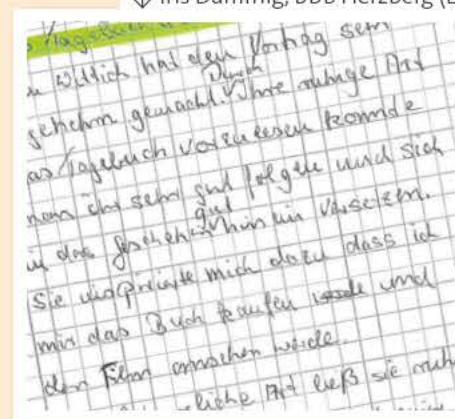 Iris Dümmig, BBB Herzberg (E
Tagebuch
Wittich hat den Vortrag sehr
genehm gemacht. Durch Ihre ruhige Art
as Tagebuch vorzulesen konnde
man ihr sehr gut folgen und sich
in das geschehen gut hinein versetzen.
Sie inspirierte mich dazu dass ich
mir das Buch kaufen und
den Film anschen werde.
liche Art ließ sie ruh